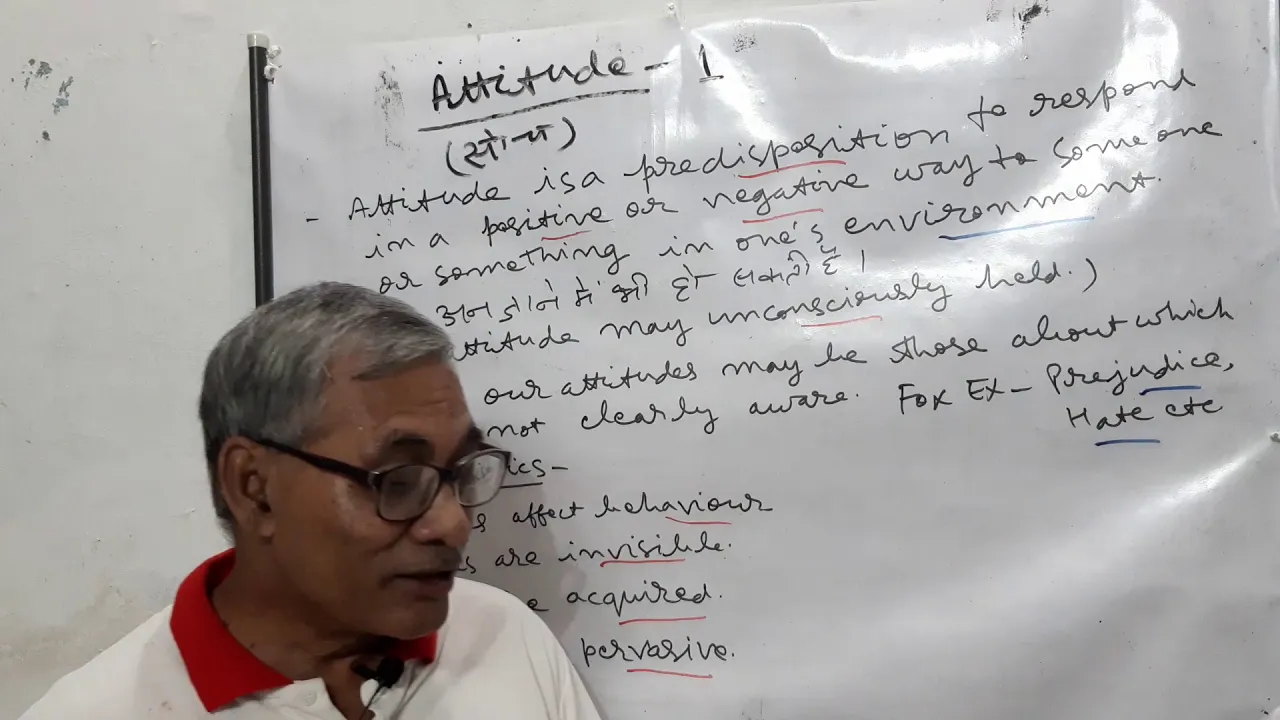 Attitude - 1
(सोच)
- Attitude is a predisposition to respond
in a positive or negative way to someone
or something in one's environment.
अनजाने में भी हो सकती है।
ttitude may unconsciously held.)
our attitudes may be those about which
not clearly aware. For Ex - Prejudice,
Hate etc
ics -
s affect behaviour
s are invisible.
e acquired.
pervasive.